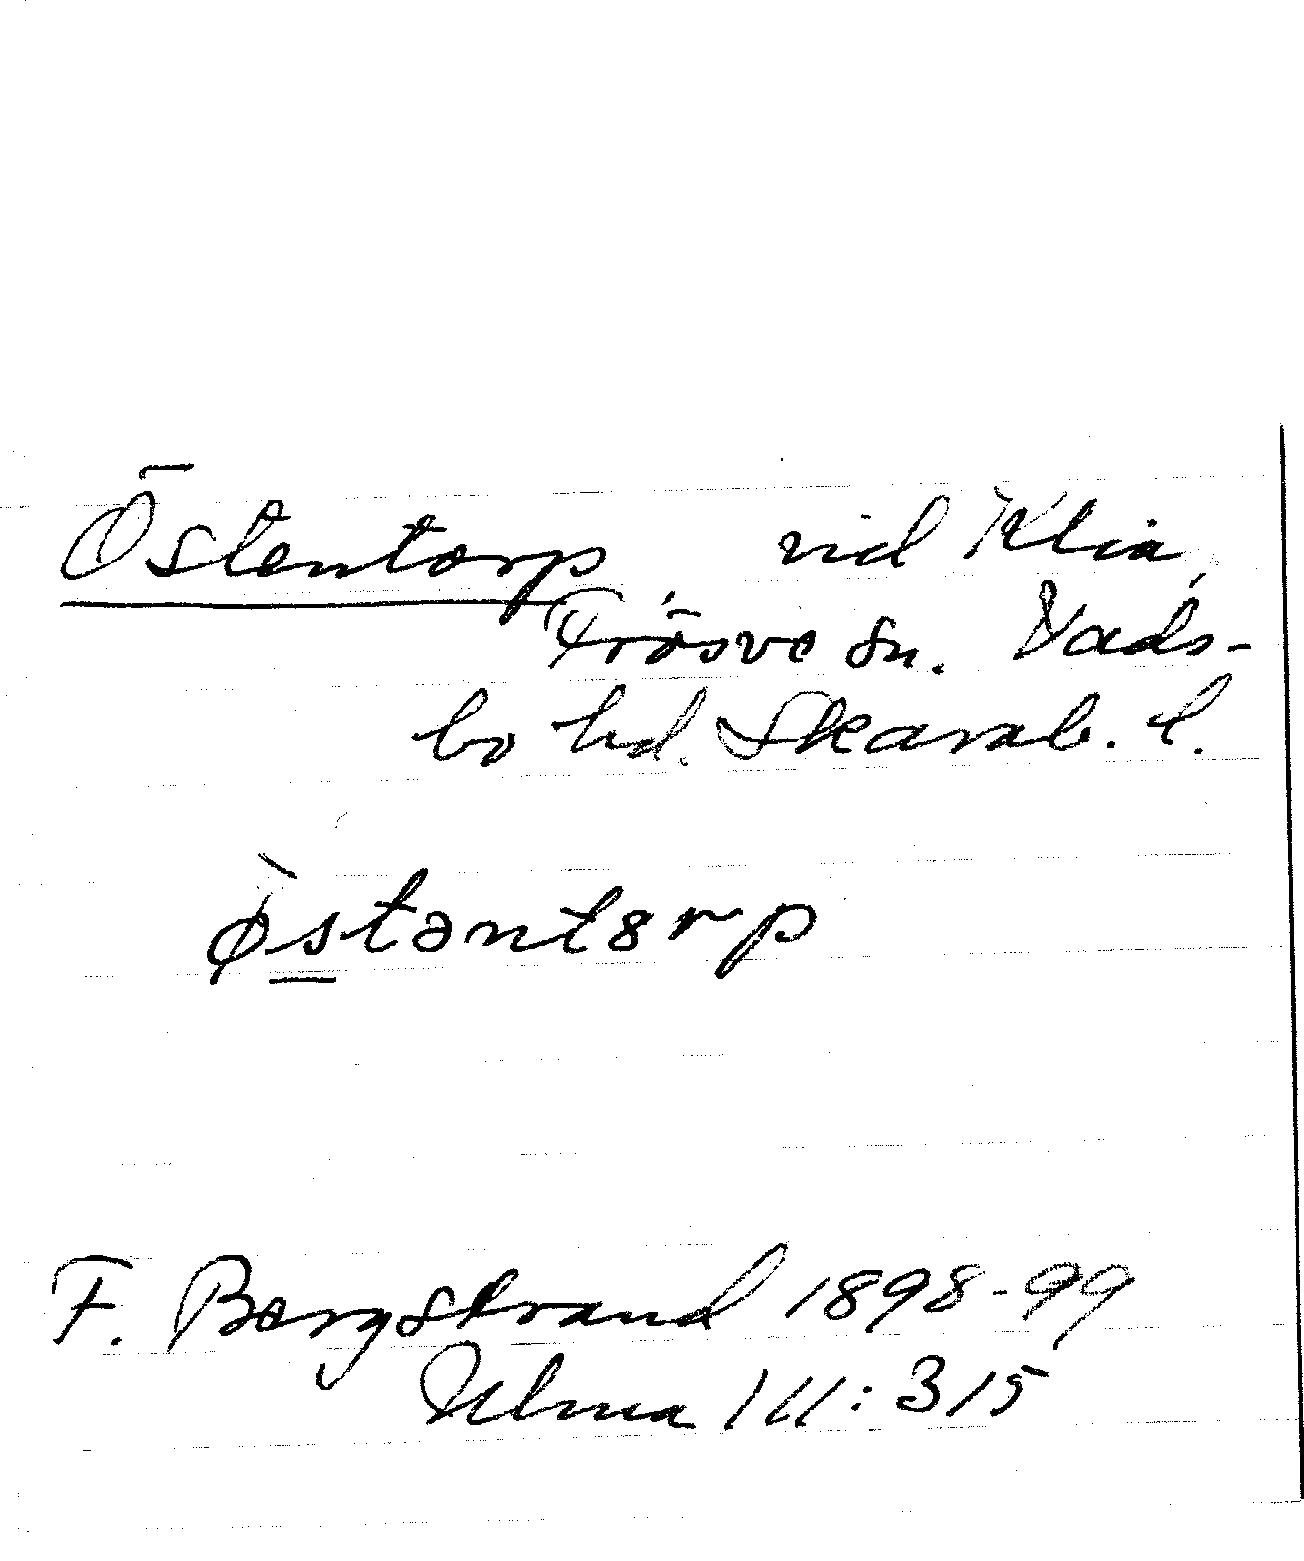 Östentorp vid Klia,
Frösve sn. Vads-
bo hd. Skarab. l.
ø̀stəntȣrp
F. Bergstrand 1898-99
Ulma 111:315